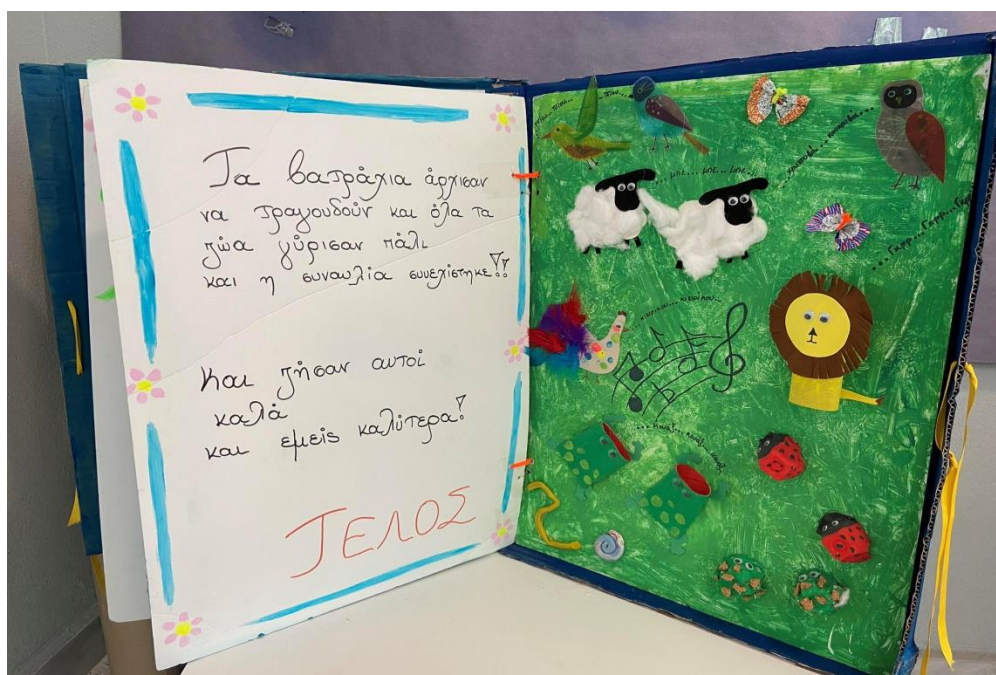 Τα βατράχια άρχισαν
να τραγουδούν και όλα τα
ζώα γύρισαν πάλι
και η συναυλία συνεχίστηκε!!
Και ζήσαν αυτοί
καλά
και εμείς καλύτερα!
ΤΕΛΟΣ
...μπε... μπε... μπε...
...Γαρρ...Γαρρ...